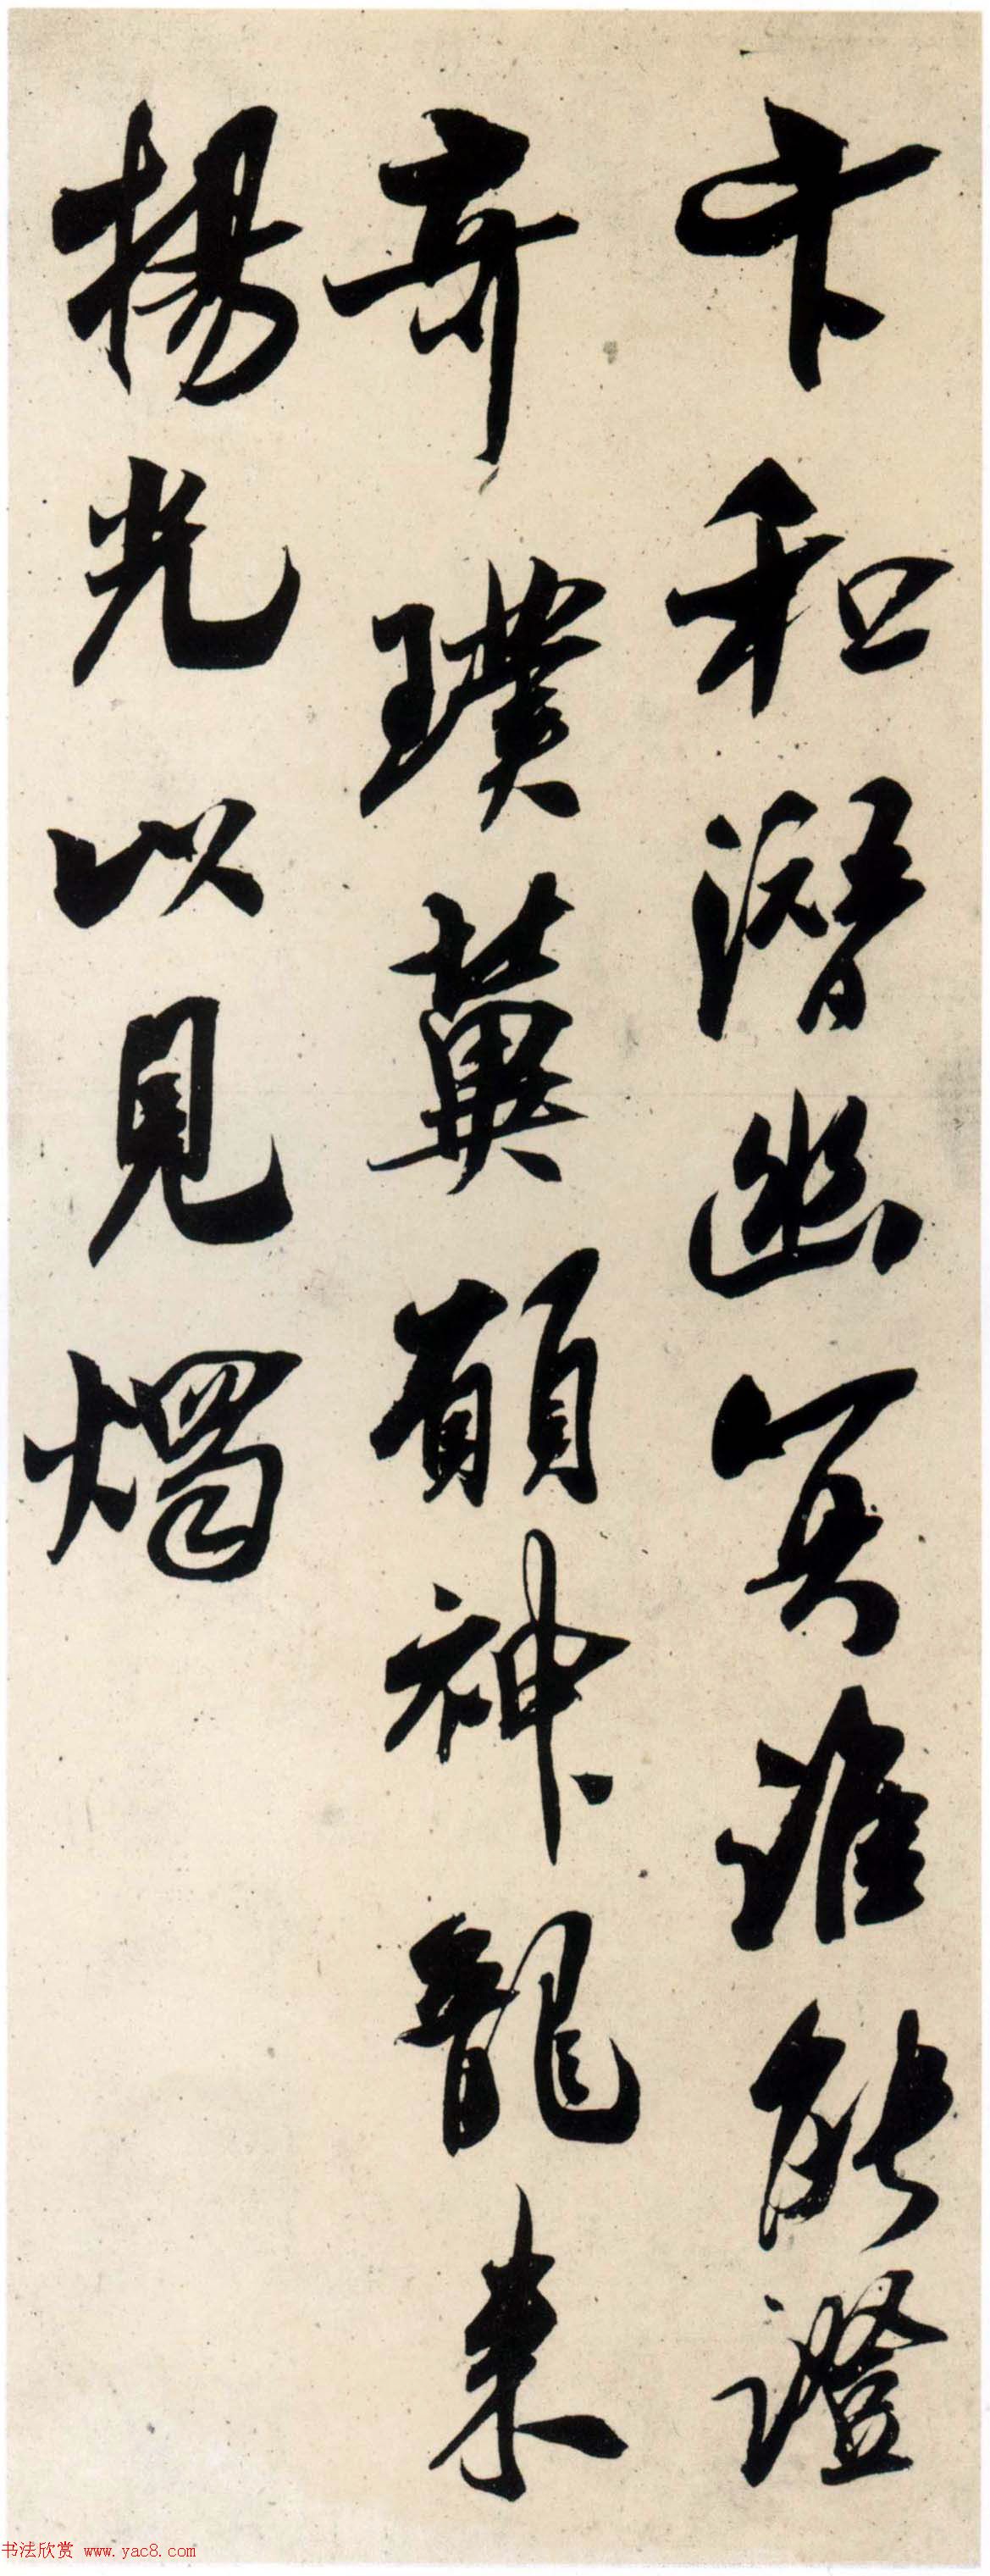 卞和潛幽冥誰能證
奇璞冀願神龍来
揚光以見燭
书法欣赏 www.yac8.com